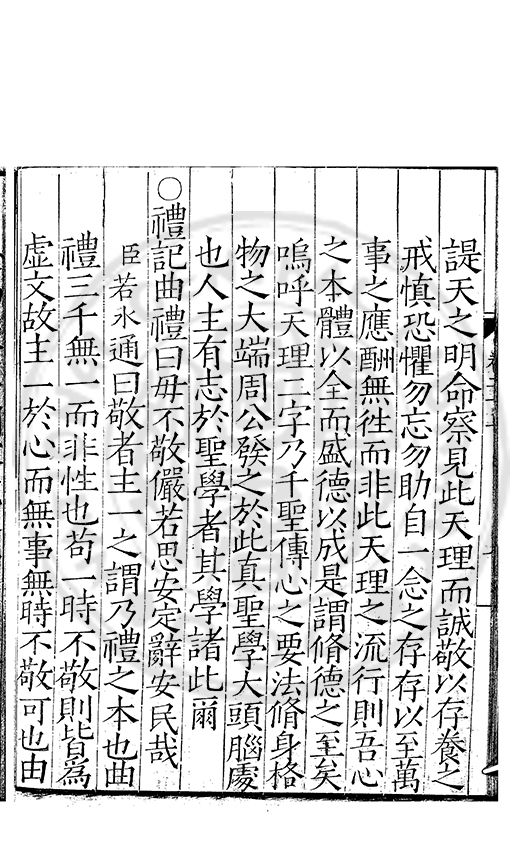 諟天之明命察見此天理而誠敬以存養之
戒慎恐懼勿忘勿助自一念之存存以至萬
事之應酬無徃而非此天理之流行則吾心
之本體以全而盛德以成是謂脩德之至矣
嗚呼天理二字乃千聖傳心之要法脩身格
物之大端周公發之於此真聖學大頭腦處
也人主有志於聖學者其學諸此爾
○禮記曲禮曰毋不敬儼若思安定辭安民哉
臣若水通曰敬者主一之謂乃禮之本也曲
禮三千無一而非性也苟一時不敬則皆為
虛文故主一於心而無事無時不敬可也由